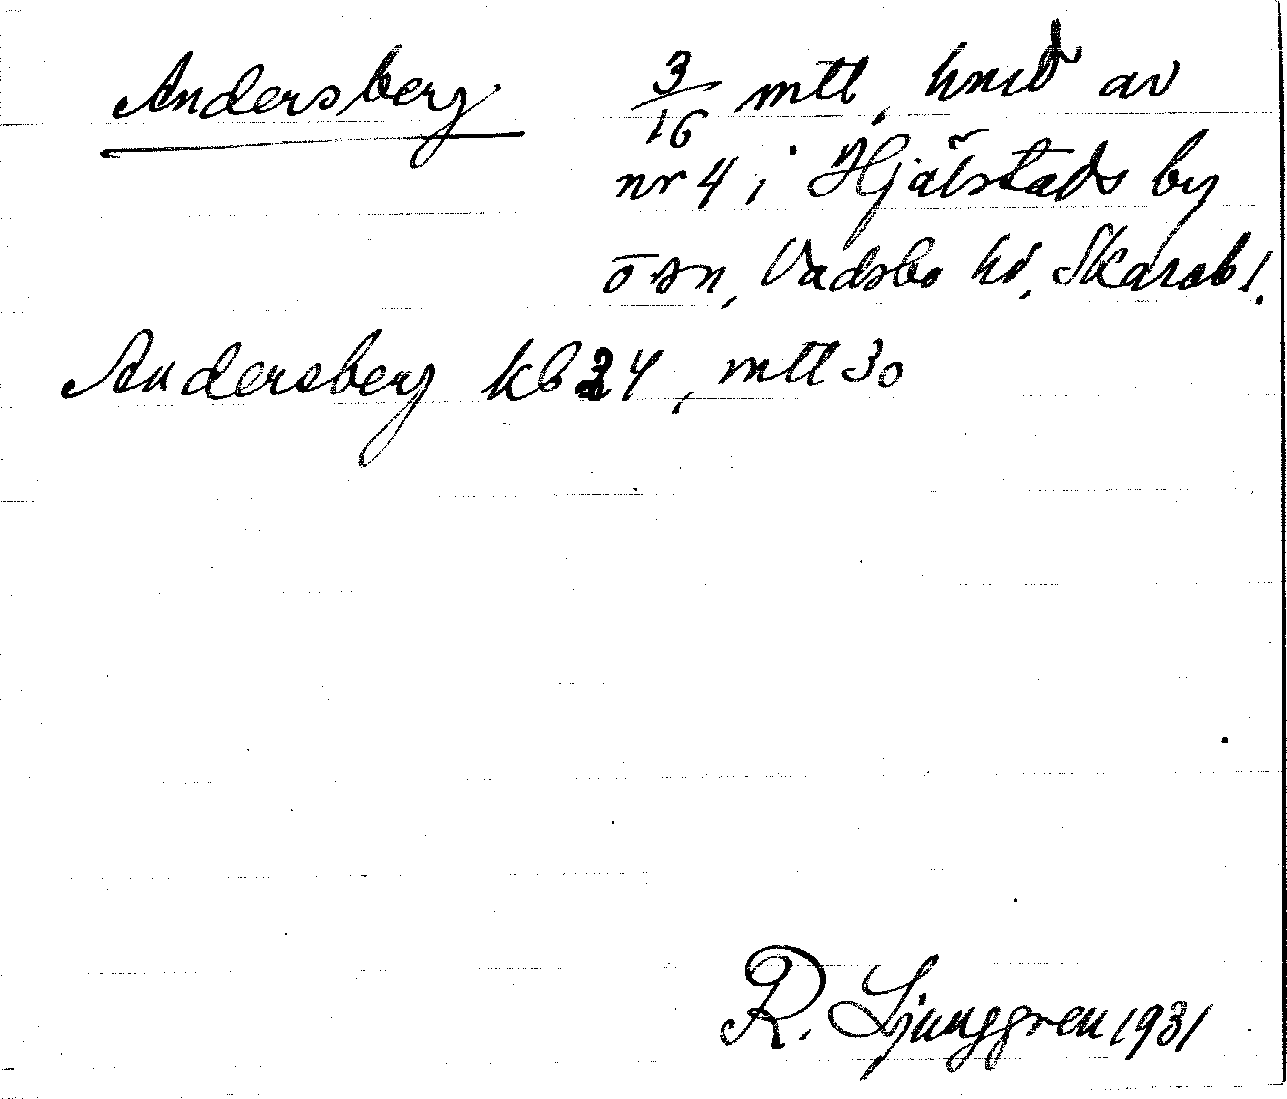 Andersberg 3/16 mtl, hmd av
nr 4 i Hjälstads by
o sn, Vadsbo hd, Skarabl.
Andersberg kb 24, mtl 30
R. Ljunggren 1931